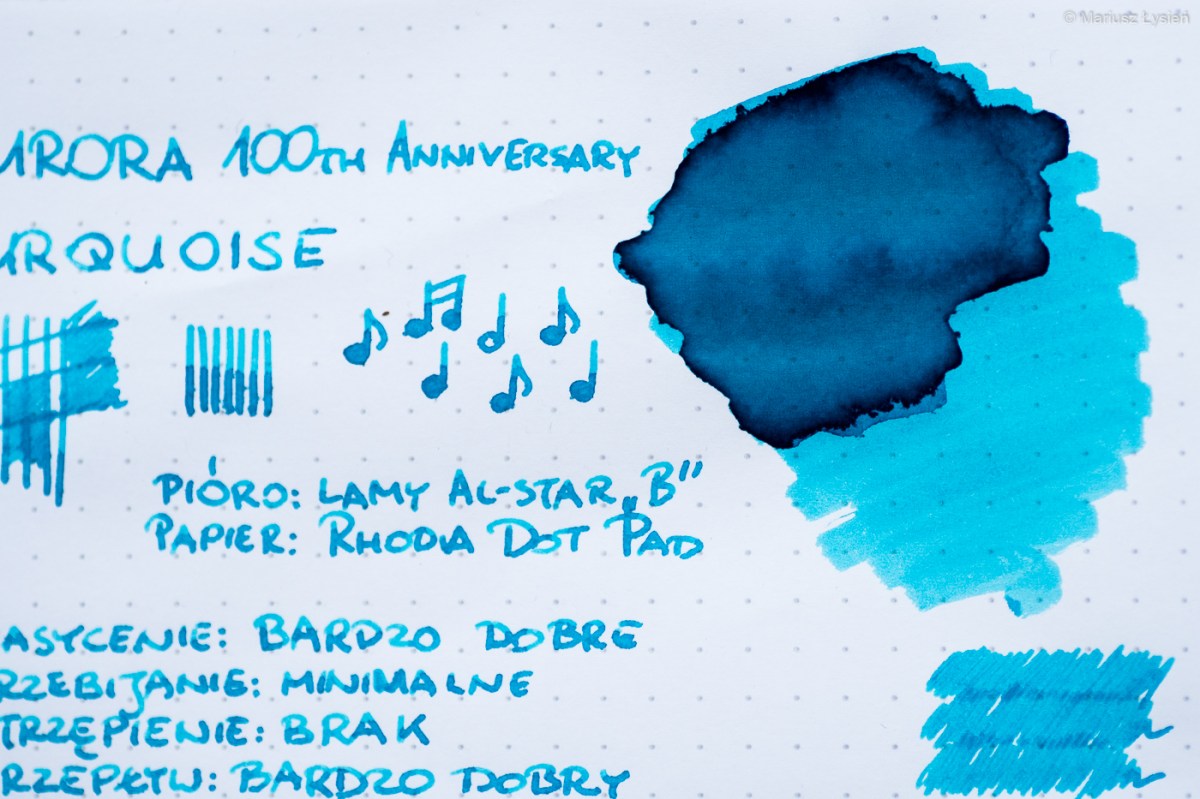 © Mariusz Lysień
URORA 100TH ANNIVERSARY
URQUOISE
PIÓRO: LAMY AL-STAR „B”
PAPIER: RHODIA DOT PAD
ASYCENIE: BARDZO DOBRE
RZEBIJANIE: MINIMALNE
TRZĘPIENIE: BRAK
RZEPŁYW: BARDZO DOBRY